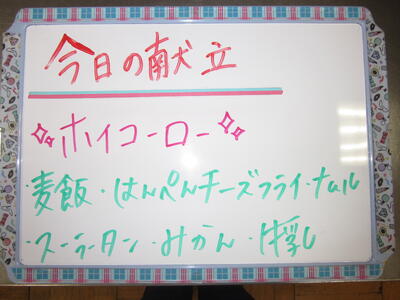 今日の献立
ホイコーロー
・麦飯・はんぺんチーズフライ・ナムル
・スーラータン・みかん・牛乳